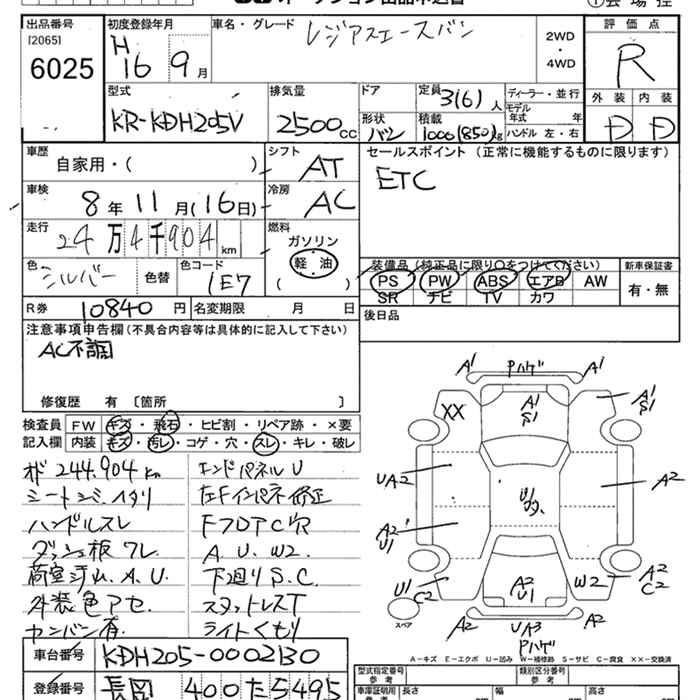 出品番号 初度登録年月 車名・グレード 評価点
[2065] H レジアスエースバン 2WD
6025 16 9月 ・ R
4WD
型式 排気量 ドア 定員 3(6)人 ディーラー・並行 外装 内装
モデル年式 年
KR-KDH205V 2500cc 形状 バン 積載 1000(850)kg ハンドル 左・右 D D
車歴 自家用・( ) シフト AT セールスポイント (正常に機能するものに限ります)
ETC
車検 8年11月(16日) 冷房 AC
走行 24万4千904km 燃料 ガソリン
軽油
( )
色 シルバー 色替 色コード 1E7
装備品(純正品に限り○をつけてください) 新車保証書
PS PW ABS エアB AW 有・無
SR ナビ TV カワ
R券 10840円 名変期限 月 日 後日品
注意事項申告欄(不具合内容等は具体的に記入して下さい)
AC不調
修復歴 有 〔箇所 〕
検査員 FW キズ・飛石・ヒビ割・リペア跡・×要
記入欄 内装 キズ・汚レ・コゲ・穴・スレ・キレ・破レ
244.904km エンドパネルU
ハンドルスレ
ダッシュ板ワレ A.U.W2.
下廻りS.C.
外装色アセ. スタットレスT
カンバン有. ライトくもり
A1 Pハゲ A1
A1 S1 A1 S1
XX
UA2 A2
A2 U1
U1 C2 A2 U1 W2 A2 C2
スペア A2 UA3 A2
Pハゲ
A-キズ E-エクボ U-凹み W-補修跡 S-サビ C-腐食 XX-交換済
車台番号 KDH205-0002130
型式指定番号 類別区分番号
登録番号 長岡 400 た 5495
車庫証明用 長さ 幅 高さ